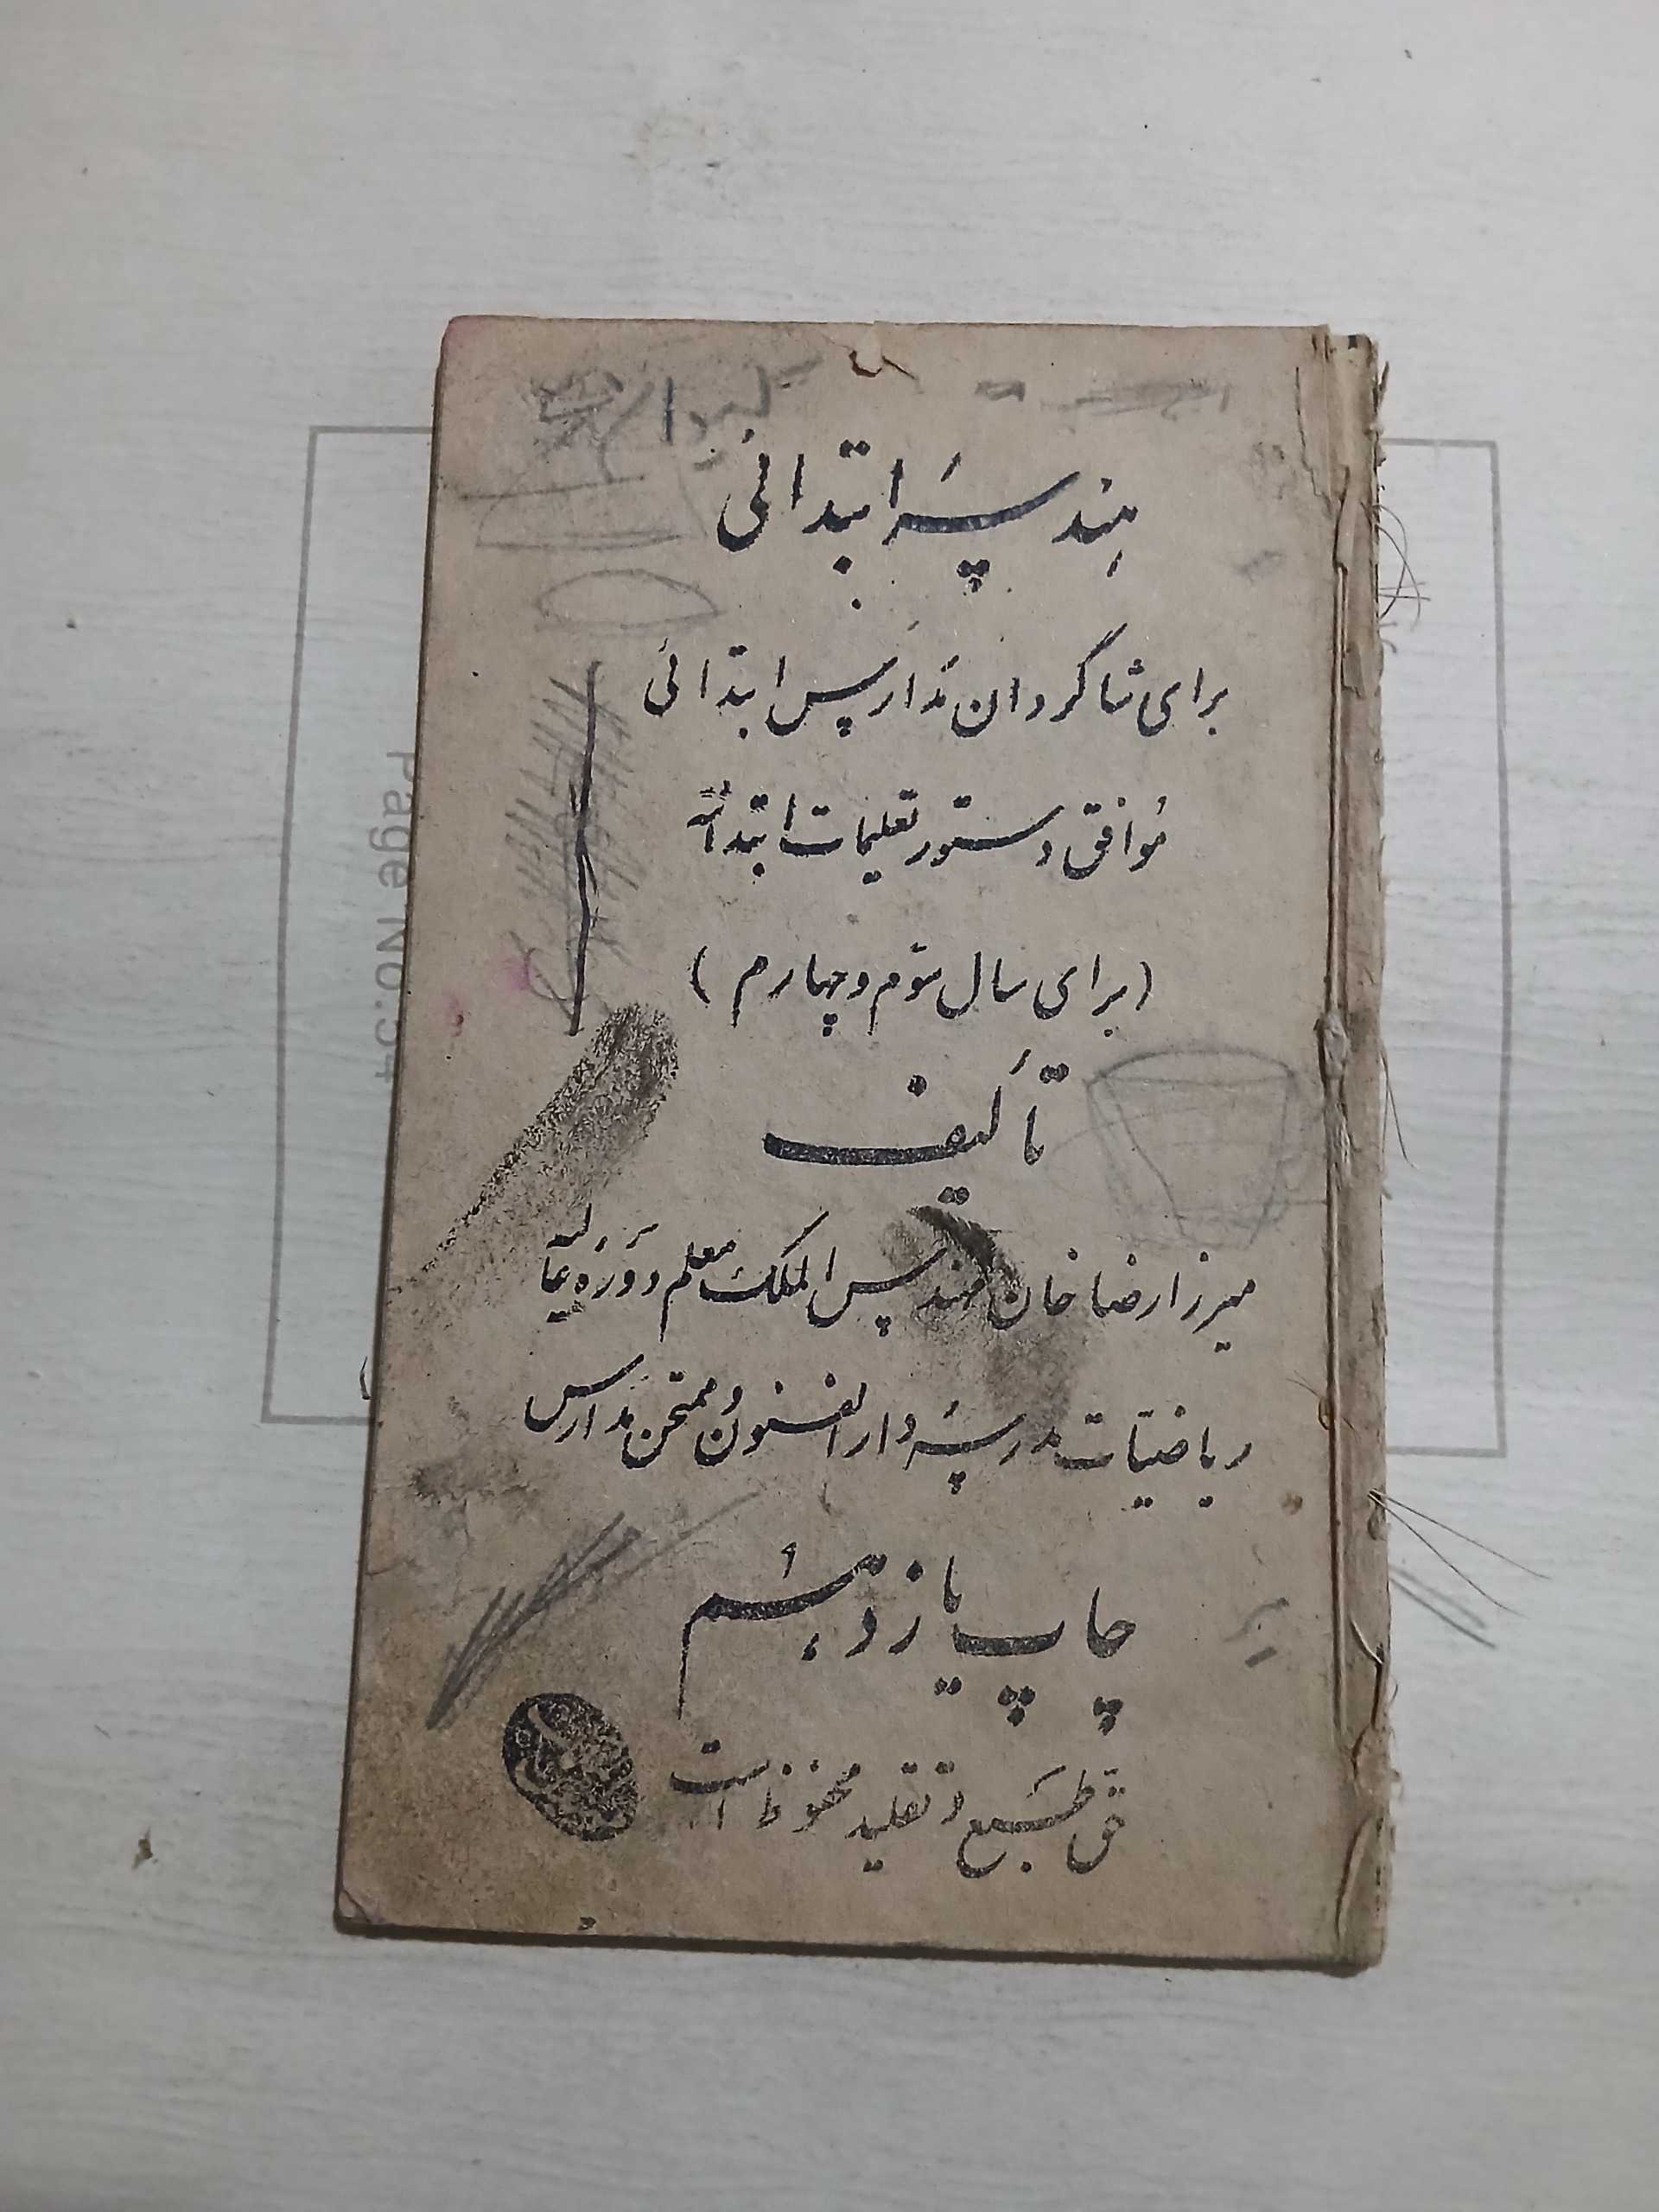 هندسهٔ ابتدائی
برای شاگردان مدارس ابتدائی
موافق دستور تعلیمات ابتدائیه
(برای سال سوم و چهارم)
تألیف
میرزا رضا خان مهندس الملک معلم دوره عالیه
ریاضیّات مدرسه دار الفنون و ممتحن مدارس
چاپ یازدهم
حق طبع و تقلید محفوظ است
Page No.54